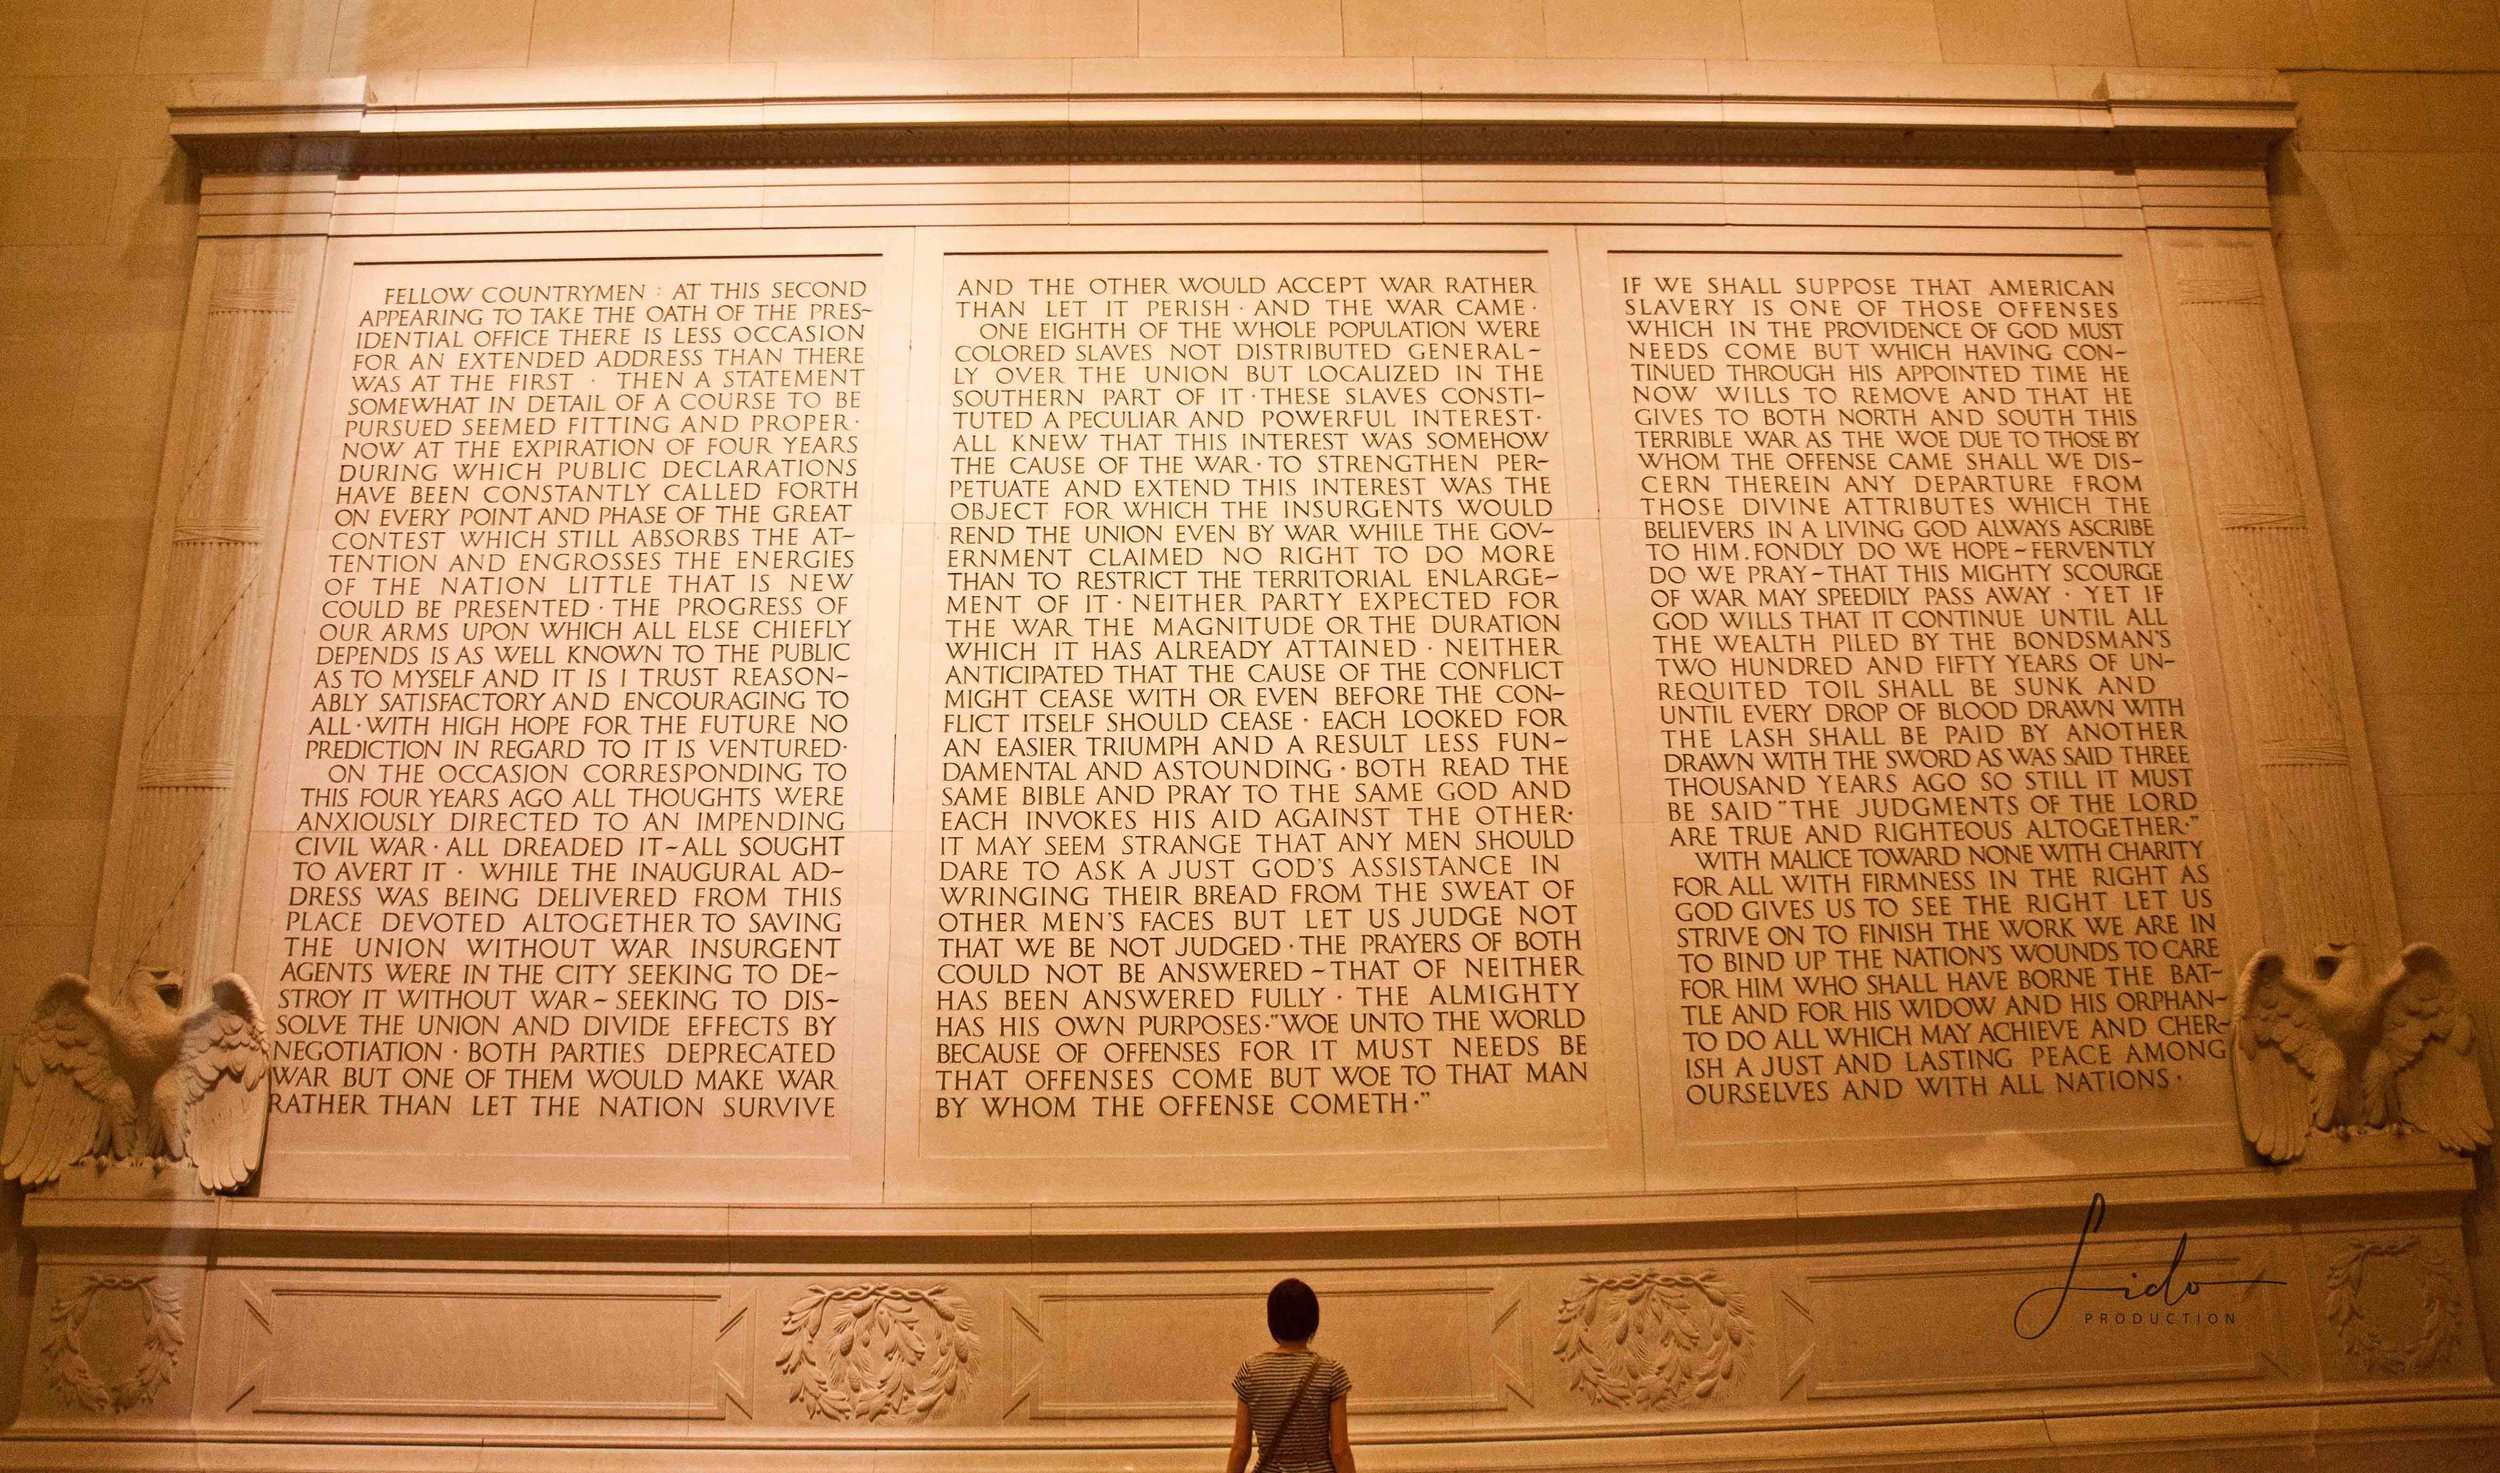 FELLOW COUNTRYMEN : AT THIS SECOND
APPEARING TO TAKE THE OATH OF THE PRES-
IDENTIAL OFFICE THERE IS LESS OCCASION
FOR AN EXTENDED ADDRESS THAN THERE
WAS AT THE FIRST · THEN A STATEMENT
SOMEWHAT IN DETAIL OF A COURSE TO BE
PURSUED SEEMED FITTING AND PROPER ·
NOW AT THE EXPIRATION OF FOUR YEARS
DURING WHICH PUBLIC DECLARATIONS
HAVE BEEN CONSTANTLY CALLED FORTH
ON EVERY POINT AND PHASE OF THE GREAT
CONTEST WHICH STILL ABSORBS THE AT-
TENTION AND ENGROSSES THE ENERGIES
OF THE NATION LITTLE THAT IS NEW
COULD BE PRESENTED · THE PROGRESS OF
OUR ARMS UPON WHICH ALL ELSE CHIEFLY
DEPENDS IS AS WELL KNOWN TO THE PUBLIC
AS TO MYSELF AND IT IS I TRUST REASON-
ABLY SATISFACTORY AND ENCOURAGING TO
ALL · WITH HIGH HOPE FOR THE FUTURE NO
PREDICTION IN REGARD TO IT IS VENTURED ·
ON THE OCCASION CORRESPONDING TO
THIS FOUR YEARS AGO ALL THOUGHTS WERE
ANXIOUSLY DIRECTED TO AN IMPENDING
CIVIL WAR · ALL DREADED IT - ALL SOUGHT
TO AVERT IT · WHILE THE INAUGURAL AD-
DRESS WAS BEING DELIVERED FROM THIS
PLACE DEVOTED ALTOGETHER TO SAVING
THE UNION WITHOUT WAR INSURGENT
AGENTS WERE IN THE CITY SEEKING TO DE-
STROY IT WITHOUT WAR - SEEKING TO DIS-
SOLVE THE UNION AND DIVIDE EFFECTS BY
NEGOTIATION · BOTH PARTIES DEPRECATED
WAR BUT ONE OF THEM WOULD MAKE WAR
RATHER THAN LET THE NATION SURVIVE
AND THE OTHER WOULD ACCEPT WAR RATHER
THAN LET IT PERISH · AND THE WAR CAME ·
ONE EIGHTH OF THE WHOLE POPULATION WERE
COLORED SLAVES NOT DISTRIBUTED GENERAL-
LY OVER THE UNION BUT LOCALIZED IN THE
SOUTHERN PART OF IT · THESE SLAVES CONSTI-
TUTED A PECULIAR AND POWERFUL INTEREST ·
ALL KNEW THAT THIS INTEREST WAS SOMEHOW
THE CAUSE OF THE WAR · TO STRENGTHEN PER-
PETUATE AND EXTEND THIS INTEREST WAS THE
OBJECT FOR WHICH THE INSURGENTS WOULD
REND THE UNION EVEN BY WAR WHILE THE GOV-
ERNMENT CLAIMED NO RIGHT TO DO MORE
THAN TO RESTRICT THE TERRITORIAL ENLARGE-
MENT OF IT · NEITHER PARTY EXPECTED FOR
THE WAR THE MAGNITUDE OR THE DURATION
WHICH IT HAS ALREADY ATTAINED · NEITHER
ANTICIPATED THAT THE CAUSE OF THE CONFLICT
MIGHT CEASE WITH OR EVEN BEFORE THE CON-
FLICT ITSELF SHOULD CEASE · EACH LOOKED FOR
AN EASIER TRIUMPH AND A RESULT LESS FUN-
DAMENTAL AND ASTOUNDING · BOTH READ THE
SAME BIBLE AND PRAY TO THE SAME GOD AND
EACH INVOKES HIS AID AGAINST THE OTHER ·
IT MAY SEEM STRANGE THAT ANY MEN SHOULD
DARE TO ASK A JUST GOD'S ASSISTANCE IN
WRINGING THEIR BREAD FROM THE SWEAT OF
OTHER MEN'S FACES BUT LET US JUDGE NOT
THAT WE BE NOT JUDGED · THE PRAYERS OF BOTH
COULD NOT BE ANSWERED - THAT OF NEITHER
HAS BEEN ANSWERED FULLY · THE ALMIGHTY
HAS HIS OWN PURPOSES · "WOE UNTO THE WORLD
BECAUSE OF OFFENSES FOR IT MUST NEEDS BE
THAT OFFENSES COME BUT WOE TO THAT MAN
BY WHOM THE OFFENSE COMETH · "
IF WE SHALL SUPPOSE THAT AMERICAN
SLAVERY IS ONE OF THOSE OFFENSES
WHICH IN THE PROVIDENCE OF GOD MUST
NEEDS COME BUT WHICH HAVING CON-
TINUED THROUGH HIS APPOINTED TIME HE
NOW WILLS TO REMOVE AND THAT HE
GIVES TO BOTH NORTH AND SOUTH THIS
TERRIBLE WAR AS THE WOE DUE TO THOSE BY
WHOM THE OFFENSE CAME SHALL WE DIS-
CERN THEREIN ANY DEPARTURE FROM
THOSE DIVINE ATTRIBUTES WHICH THE
BELIEVERS IN A LIVING GOD ALWAYS ASCRIBE
TO HIM . FONDLY DO WE HOPE - FERVENTLY
DO WE PRAY - THAT THIS MIGHTY SCOURGE
OF WAR MAY SPEEDILY PASS AWAY · YET IF
GOD WILLS THAT IT CONTINUE UNTIL ALL
THE WEALTH PILED BY THE BONDSMAN'S
TWO HUNDRED AND FIFTY YEARS OF UN-
REQUITED TOIL SHALL BE SUNK AND
UNTIL EVERY DROP OF BLOOD DRAWN WITH
THE LASH SHALL BE PAID BY ANOTHER
DRAWN WITH THE SWORD AS WAS SAID THREE
THOUSAND YEARS AGO SO STILL IT MUST
BE SAID "THE JUDGMENTS OF THE LORD
ARE TRUE AND RIGHTEOUS ALTOGETHER · "
WITH MALICE TOWARD NONE WITH CHARITY
FOR ALL WITH FIRMNESS IN THE RIGHT AS
GOD GIVES US TO SEE THE RIGHT LET US
STRIVE ON TO FINISH THE WORK WE ARE IN
TO BIND UP THE NATION'S WOUNDS TO CARE
FOR HIM WHO SHALL HAVE BORNE THE BAT-
TLE AND FOR HIS WIDOW AND HIS ORPHAN -
TO DO ALL WHICH MAY ACHIEVE AND CHER-
ISH A JUST AND LASTING PEACE AMONG
OURSELVES AND WITH ALL NATIONS ·
Lido
PRODUCTION